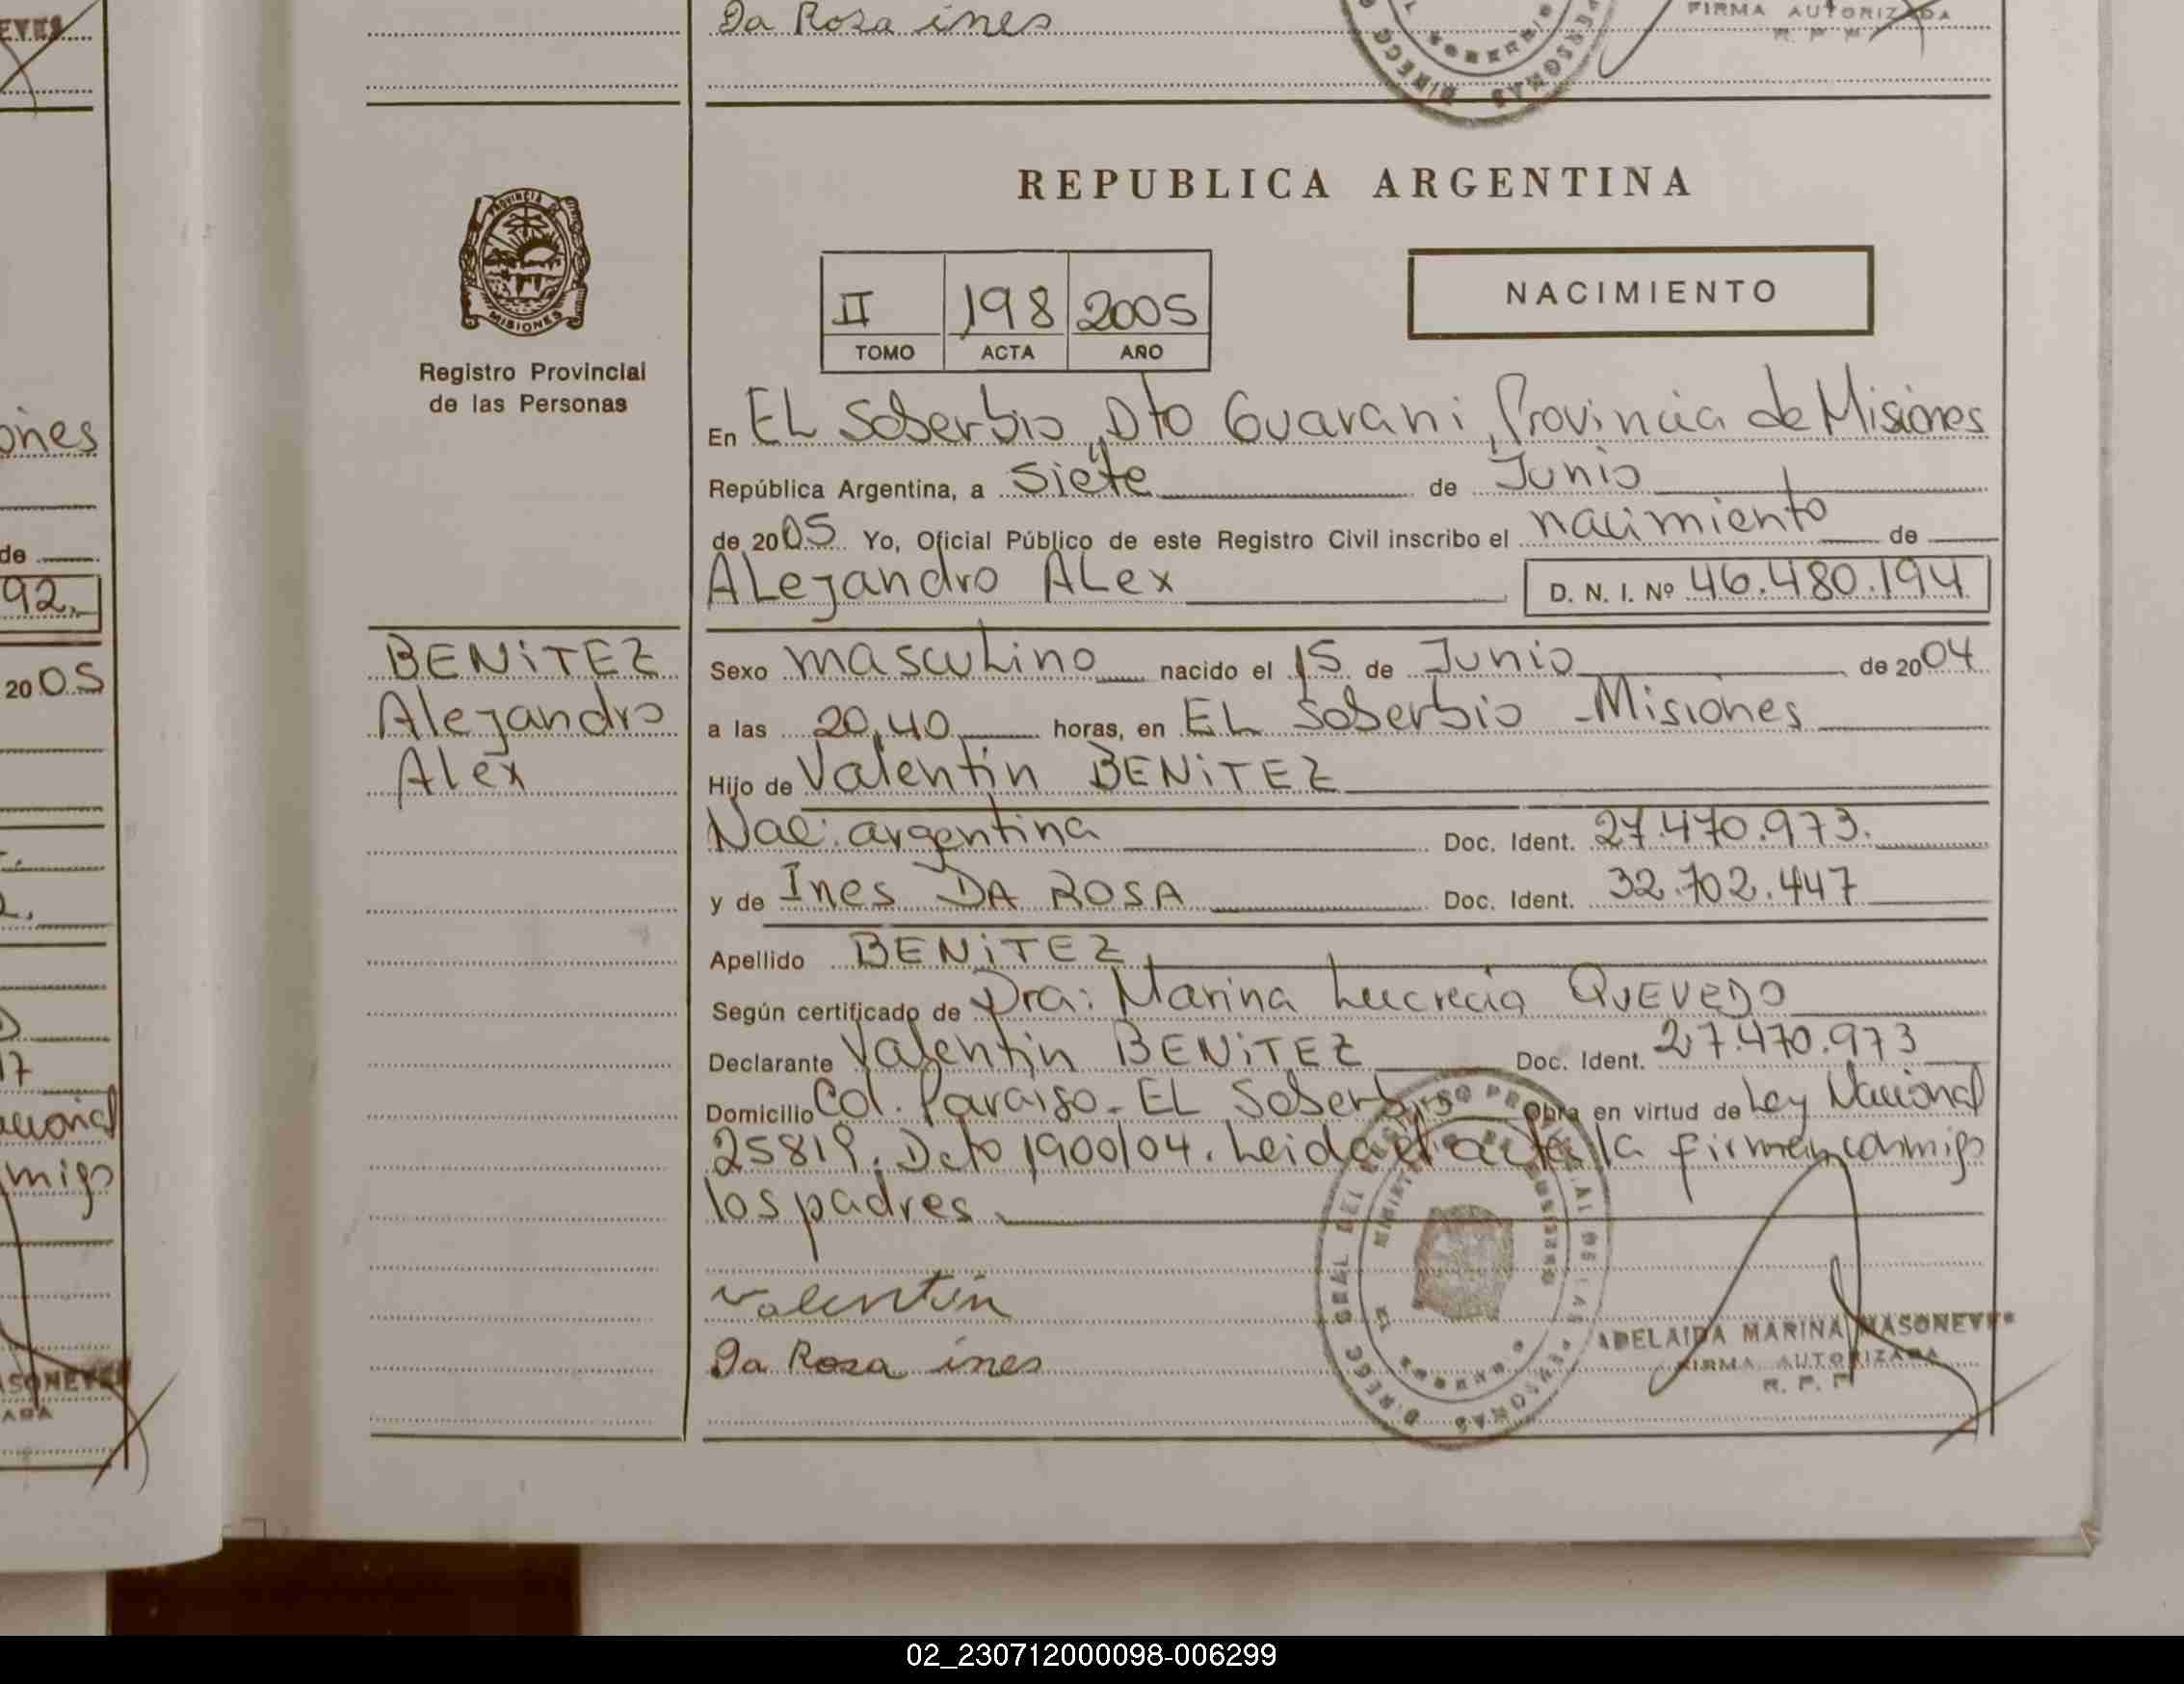 Da Rosa ines
FIRMA AUTORIZADA
REPUBLICA ARGENTINA
PROVINCIA DE
MISIONES
Registro Provincial
de las Personas
II 198 2005
TOMO ACTA AÑO
NACIMIENTO
En EL Soberbio, Dto Guarani, Provincia de Misiones
República Argentina, a Siete de Junio
de 2005 Yo, Oficial Público de este Registro Civil inscribo el nacimiento de
ALejandro ALex D. N. I. Nº 46.480.194
BENITEZ
Alejandro
Alex
Sexo masculino nacido el 15 de Junio de 2004
a las 20,40 horas, en EL Soberbio - Misiones
Hijo de Valentín BENITEZ
Nac: argentina Doc. Ident. 27.470.973.
y de Ines DA ROSA Doc. Ident. 32.702.447
Apellido BENITEZ
Según certificado de Dra: Marina Lucrecia QUEVEDO
Declarante Valentín BENITEZ Doc. Ident. 27.470.973
Domicilio Col. Paraiso - EL Soberbio Obra en virtud de Ley Nacional
25819. Dcto 1900/04. Leida el acta la firman conmigo
los padres.
Valentín
Da Rosa ines
ADELAIDA MARINA MASONEVES
FIRMA AUTORIZADA
R. P. P.
ones
de
92.
2005
17
acional
migo
02_230712000098-006299